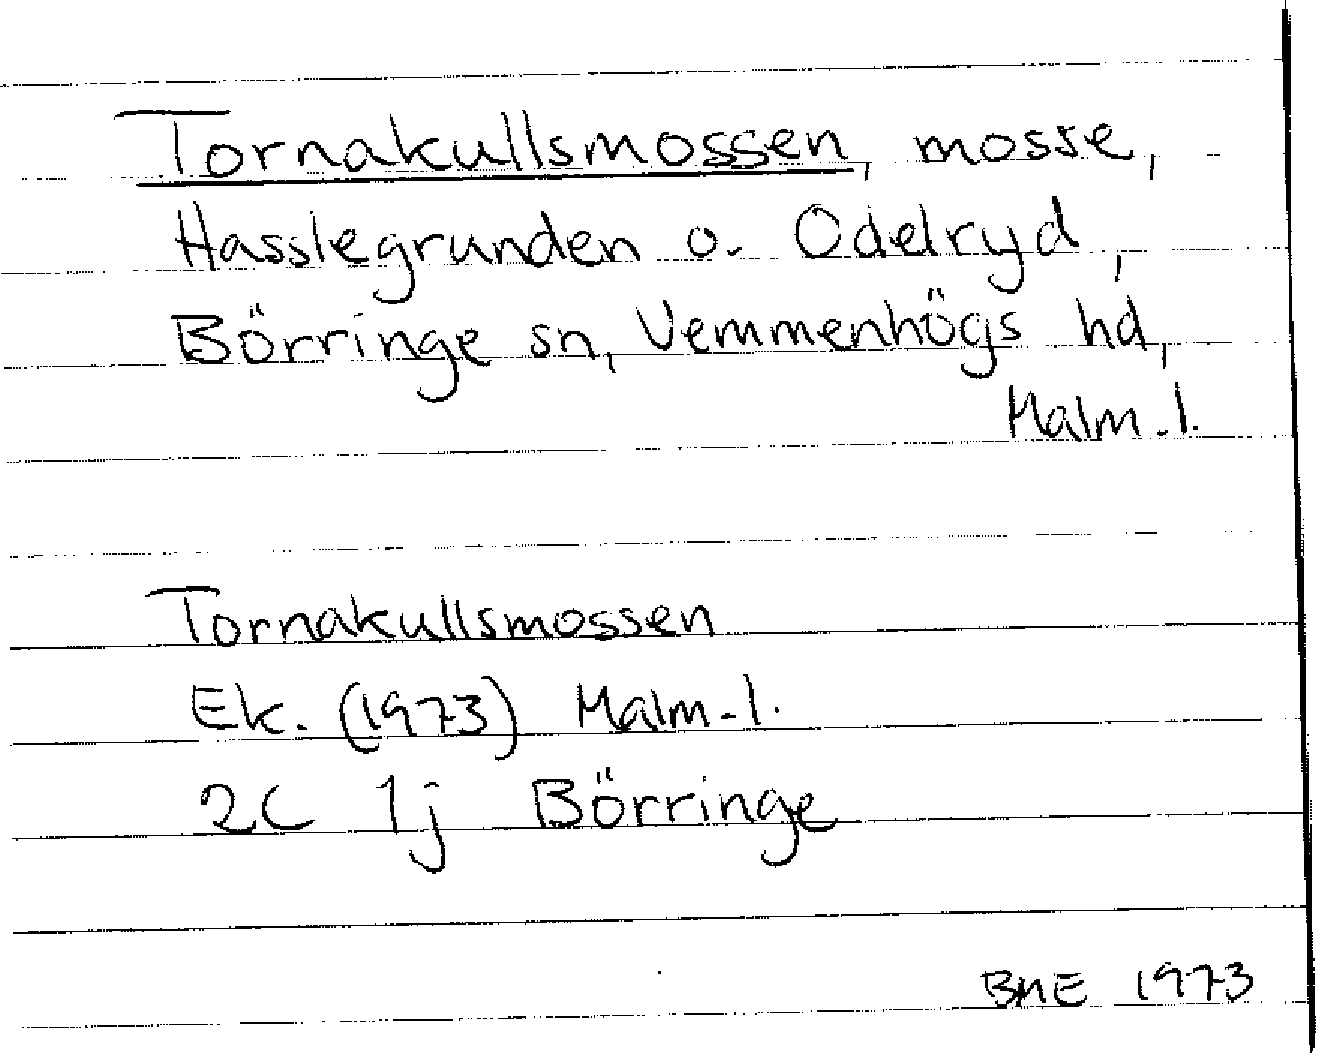 Tornakullsmossen, mosse,
Hasslegrunden o. Odelryd,
Börringe sn, Vemmenhögs hd,
Malm.l.
Tornakullsmossen
Ek. (1973) Malm.l.
2C 1j Börringe
BME 1973